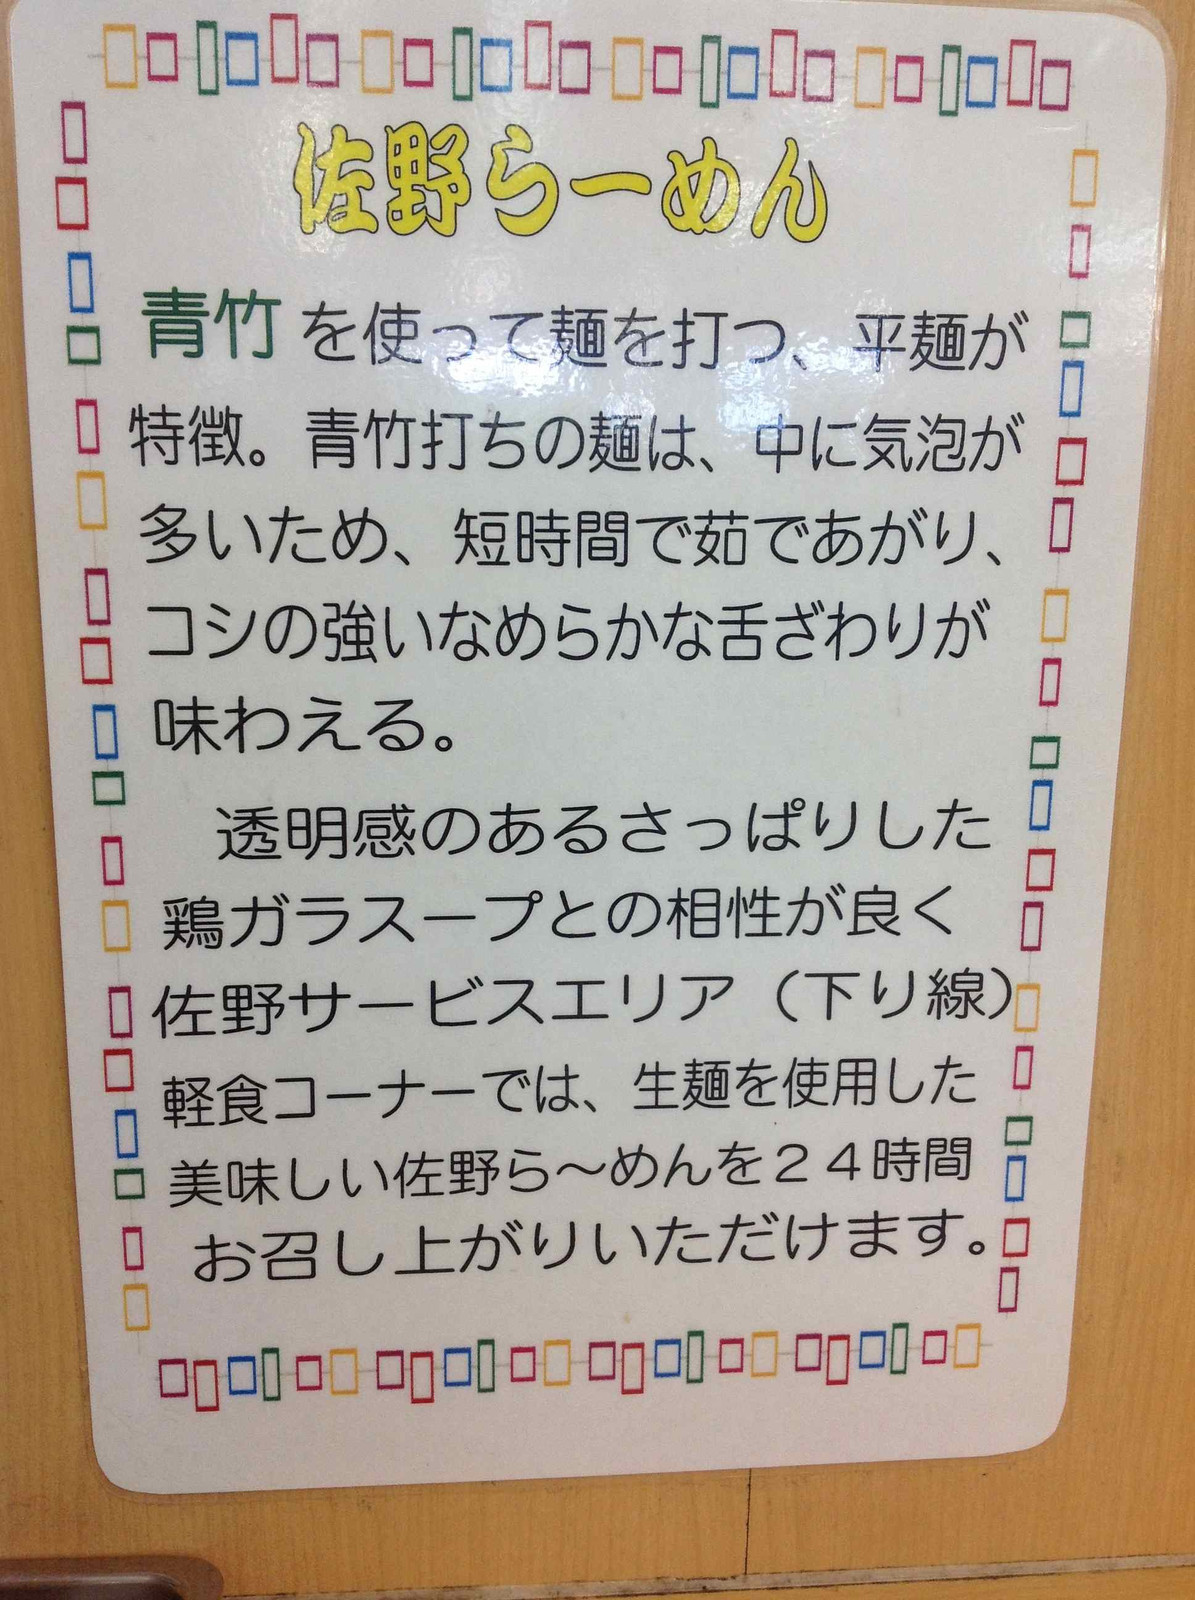 佐野らーめん
青竹を使って麺を打つ、平麺が
特徴。青竹打ちの麺は、中に気泡が
多いため、短時間で茹であがり、
コシの強いなめらかな舌ざわりが
味わえる。
透明感のあるさっぱりした
鶏ガラスープとの相性が良く
佐野サービスエリア（下り線）
軽食コーナーでは、生麺を使用した
美味しい佐野ら〜めんを２４時間
お召し上がりいただけます。